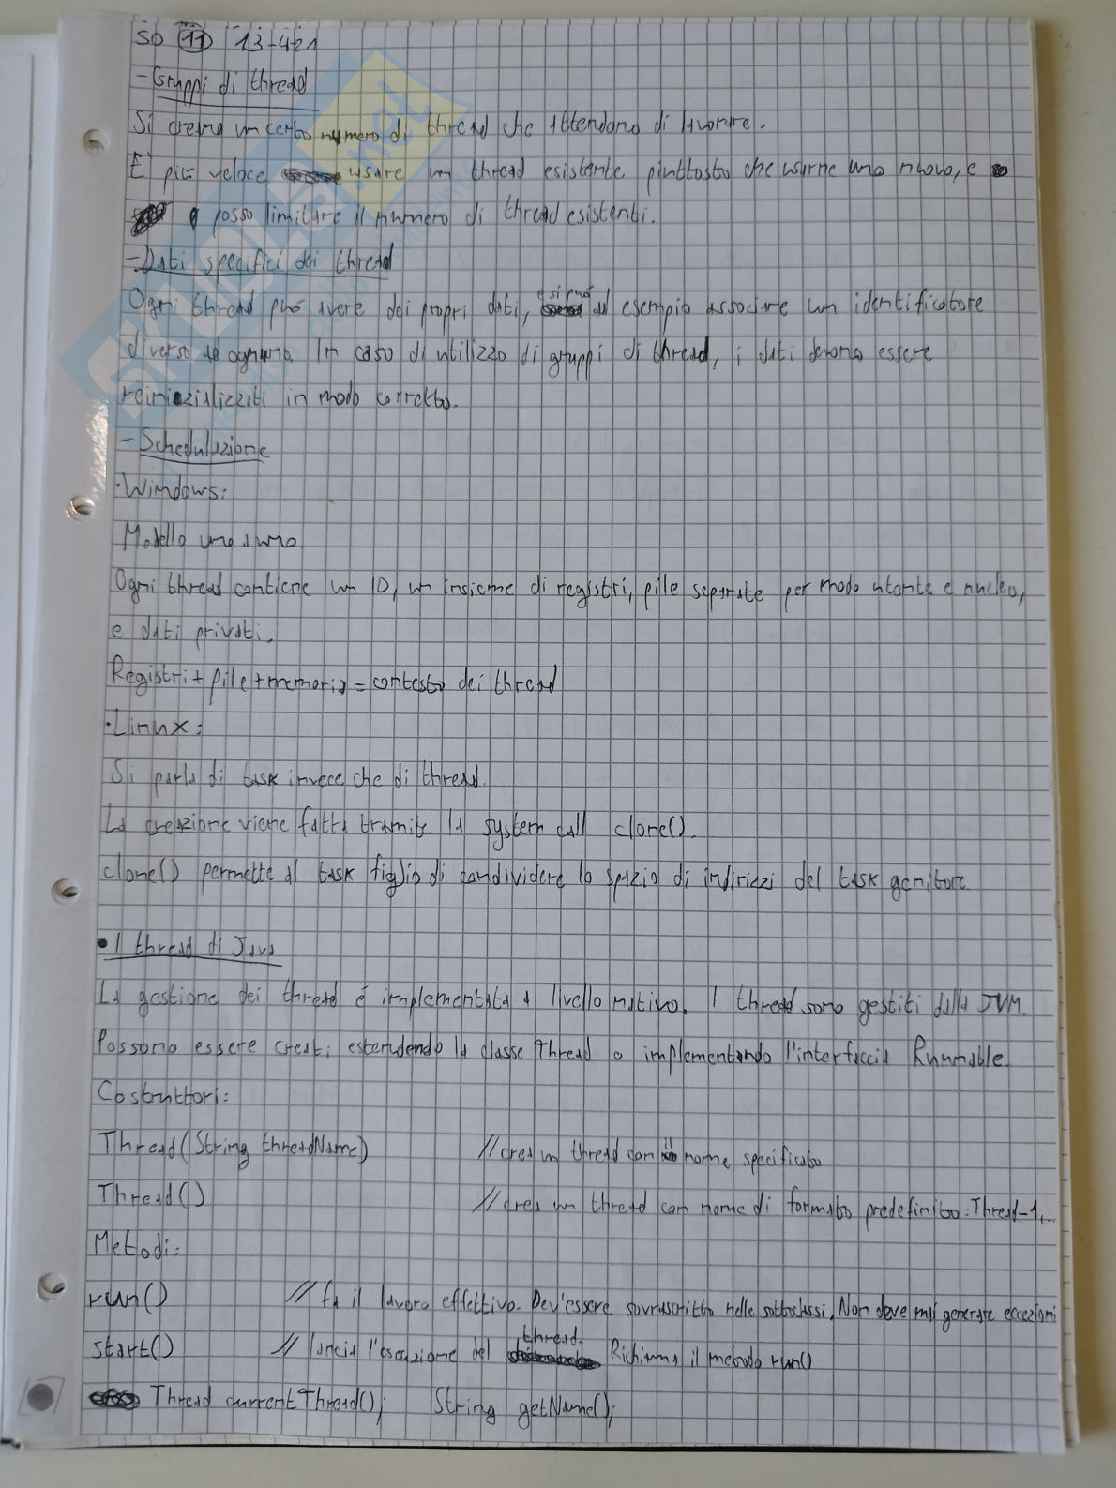 SO 11 13-4-21
- Gruppi di thread
Si creano un certo numero di thread che attendono di lavorare.
E' più veloce usare un thread esistente piuttosto che usarne uno nuovo, e
posso limitare il numero di thread esistenti.
- Dati specifici dei thread
Ogni thread può avere dei propri dati, si può ad esempio associare un identificatore
diverso ad ognuno. In caso di utilizzo di gruppi di thread, i dati devono essere
reinizializzati in modo corretto.
- Schedulazione
·Windows:
Modello uno a uno
Ogni thread contiene un ID, un insieme di registri, pile separate per modo utente e nucleo,
e dati privati.
Registri + pile + memoria = contesto dei thread
·Linux:
Si parla di task invece che di thread.
La creazione viene fatta tramite la system call clone().
clone() permette al task figlio di condividere lo spazio di indirizzi del task genitore
• I thread di Java
La gestione dei thread é implementata a livello nativo. I thread sono gestiti dalla JVM.
Possono essere creati estendendo la classe Thread o implementando l'interfaccia Runnable.
Costruttori:
Thread(String threadName) //crea un thread con nome specificato
Thread() //crea un thread con nome di formato predefinito: Thread-1,...
Metodi:
run() // fa il lavoro effettivo. Dev'essere sovrascritto nelle sottoclassi. Non deve mai generare eccezioni
start() // lancia l'esecuzione del thread. Richiama il metodo run()
Thread currentThread(); String getName();